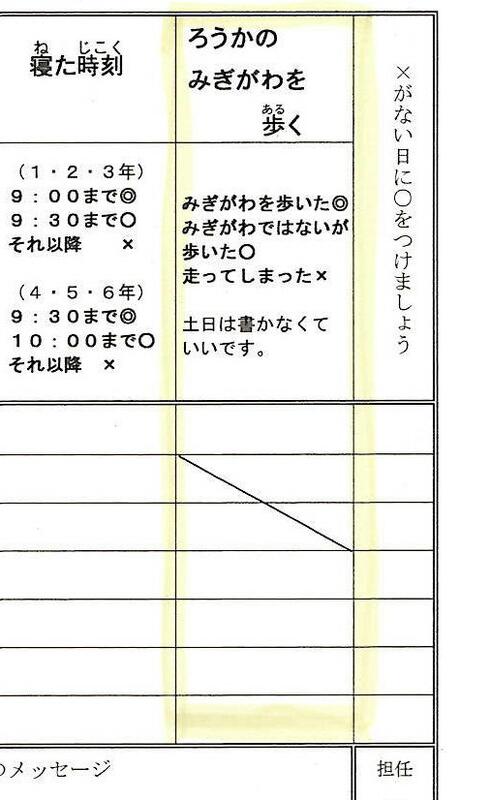 寝た時刻
ね じこく
（1・2・3年）
9：00まで◎
9：30まで〇
それ以降 ×
（4・5・6年）
9：30まで◎
10：00まで〇
それ以降 ×
ろうかの
みぎがわを
ある
歩く
みぎがわを歩いた◎
みぎがわではないが
歩いた〇
走ってしまった×
土日は書かなくて
いいです。
×がない日に〇をつけましょう
のメッセージ
担任